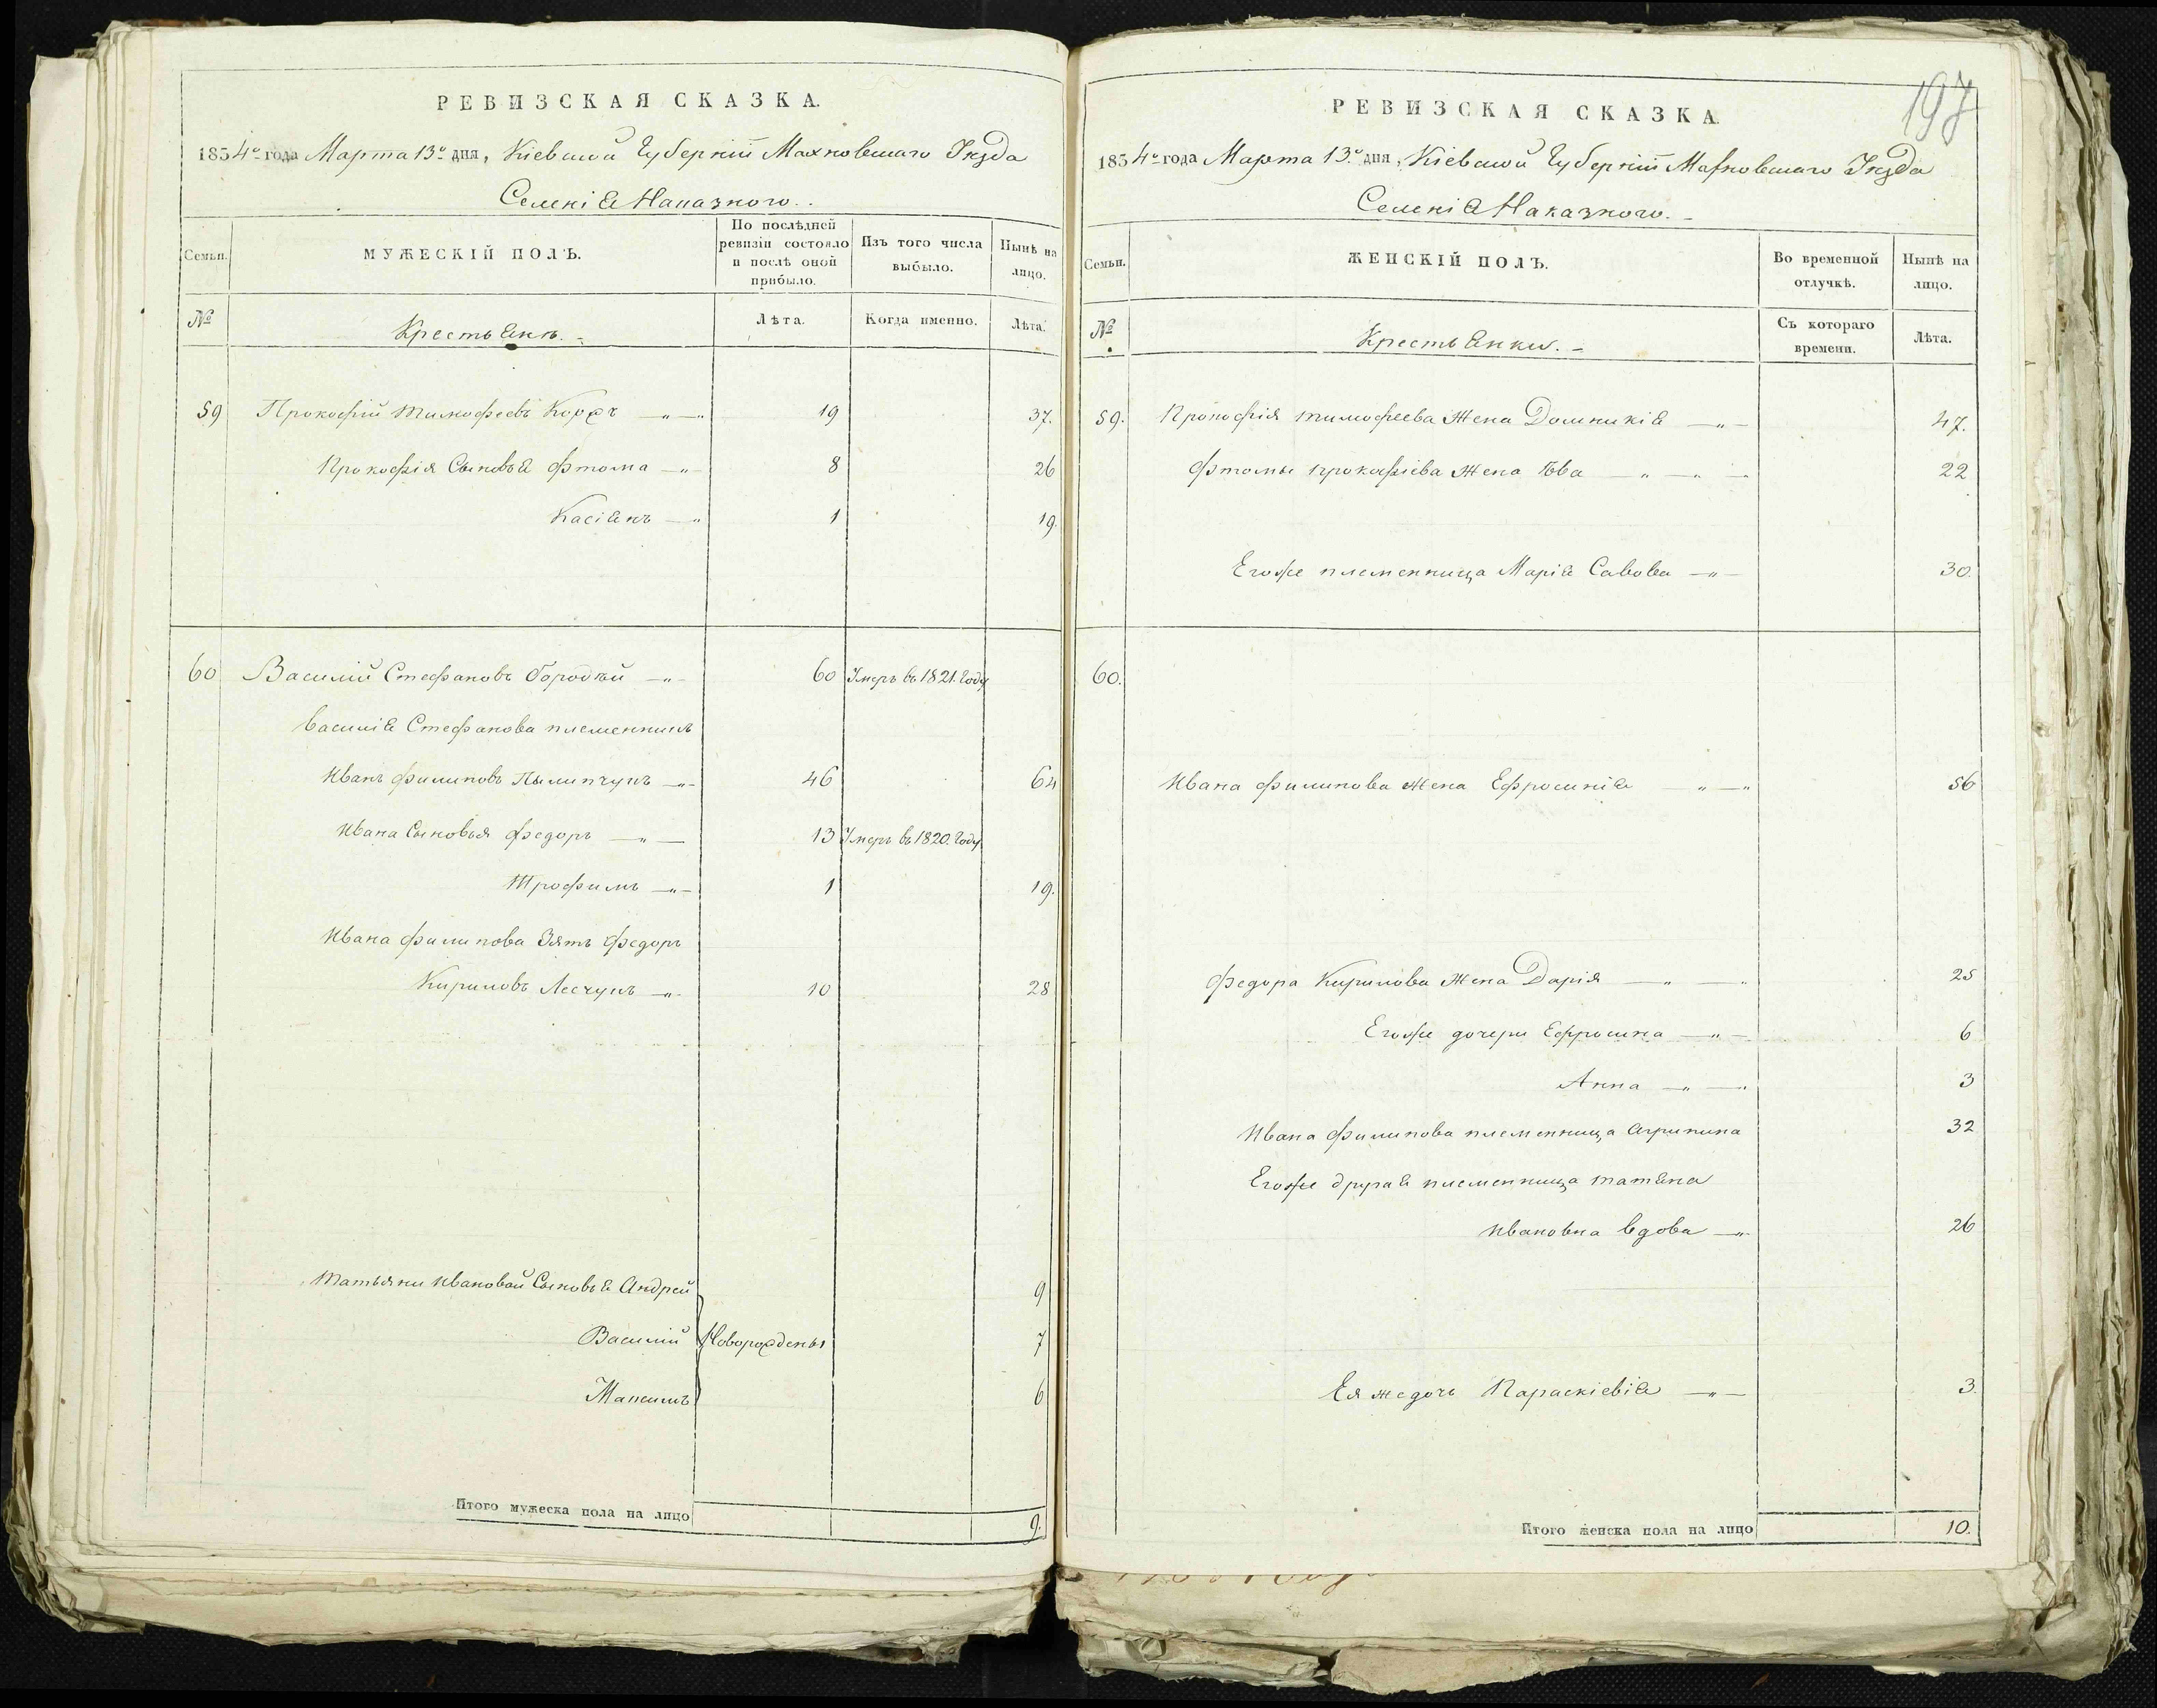 РЕВИЗСКАЯ СКАЗКА.
1834го года Марта 13го дня, Кіевской Губерніи Махновскаго Уѣзда
Селенія Наказного.
Семьи.
МУЖЕСКІЙ ПОЛЪ.
По послѣдней ревизіи состояло и послѣ оной прибыло.
Изъ того числа выбыло.
Нынѣ на лицо.
№
Крестьянъ.
Лѣта.
Когда именно.
Лѣта.
59 Прокофій Тимофеевъ 19 37.
Прокофія Сыновья Фтома 8 26
Касіянъ 1 19.
60 Василій Стефановъ 60 Умеръ въ 1821. Году
Василія Стефанова племенникъ
Иванъ Филиповъ Пылипчукъ 46 64
Ивана Сыновья Федоръ 13 Умеръ въ 1820. Году
Трофимъ 1 19.
Ивана Филипова Зять Федоръ
Кириловъ 10 28
Татьяни Ивановой Сыновья Андрей 9
Василій Новорожденъі 7
Максимъ 6
Итого мужеска пола на лицо 9.
197
РЕВИЗСКАЯ СКАЗКА.
1834го года Марта 13го дня, Кіевской Губерніи Махновскаго Уѣзда
Селенія Наказного.
Семьи.
ЖЕНСКІЙ ПОЛЪ.
Во временной отлучкѣ.
Нынѣ на лицо.
№
Крестьянки.
Съ котораго времени.
Лѣта.
59. Прокофія Тимофеева Жена Домникія 47.
Фтомы Прокофіева Жена Ева 22
Егоже племенница Марія Савова 30.
60.
Ивана Филипова Жена Ефросинія 56
Федора Кирилова Жена Дарія 25
Егоже дочери Ефросина 6
Анна 3
Ивана Филипова племенница Агрипина 32
Егоже другая племенница Татяна
Ивановна вдова 26
Ея же дочь Параскіевія 3.
Итого женска пола на лицо 10.